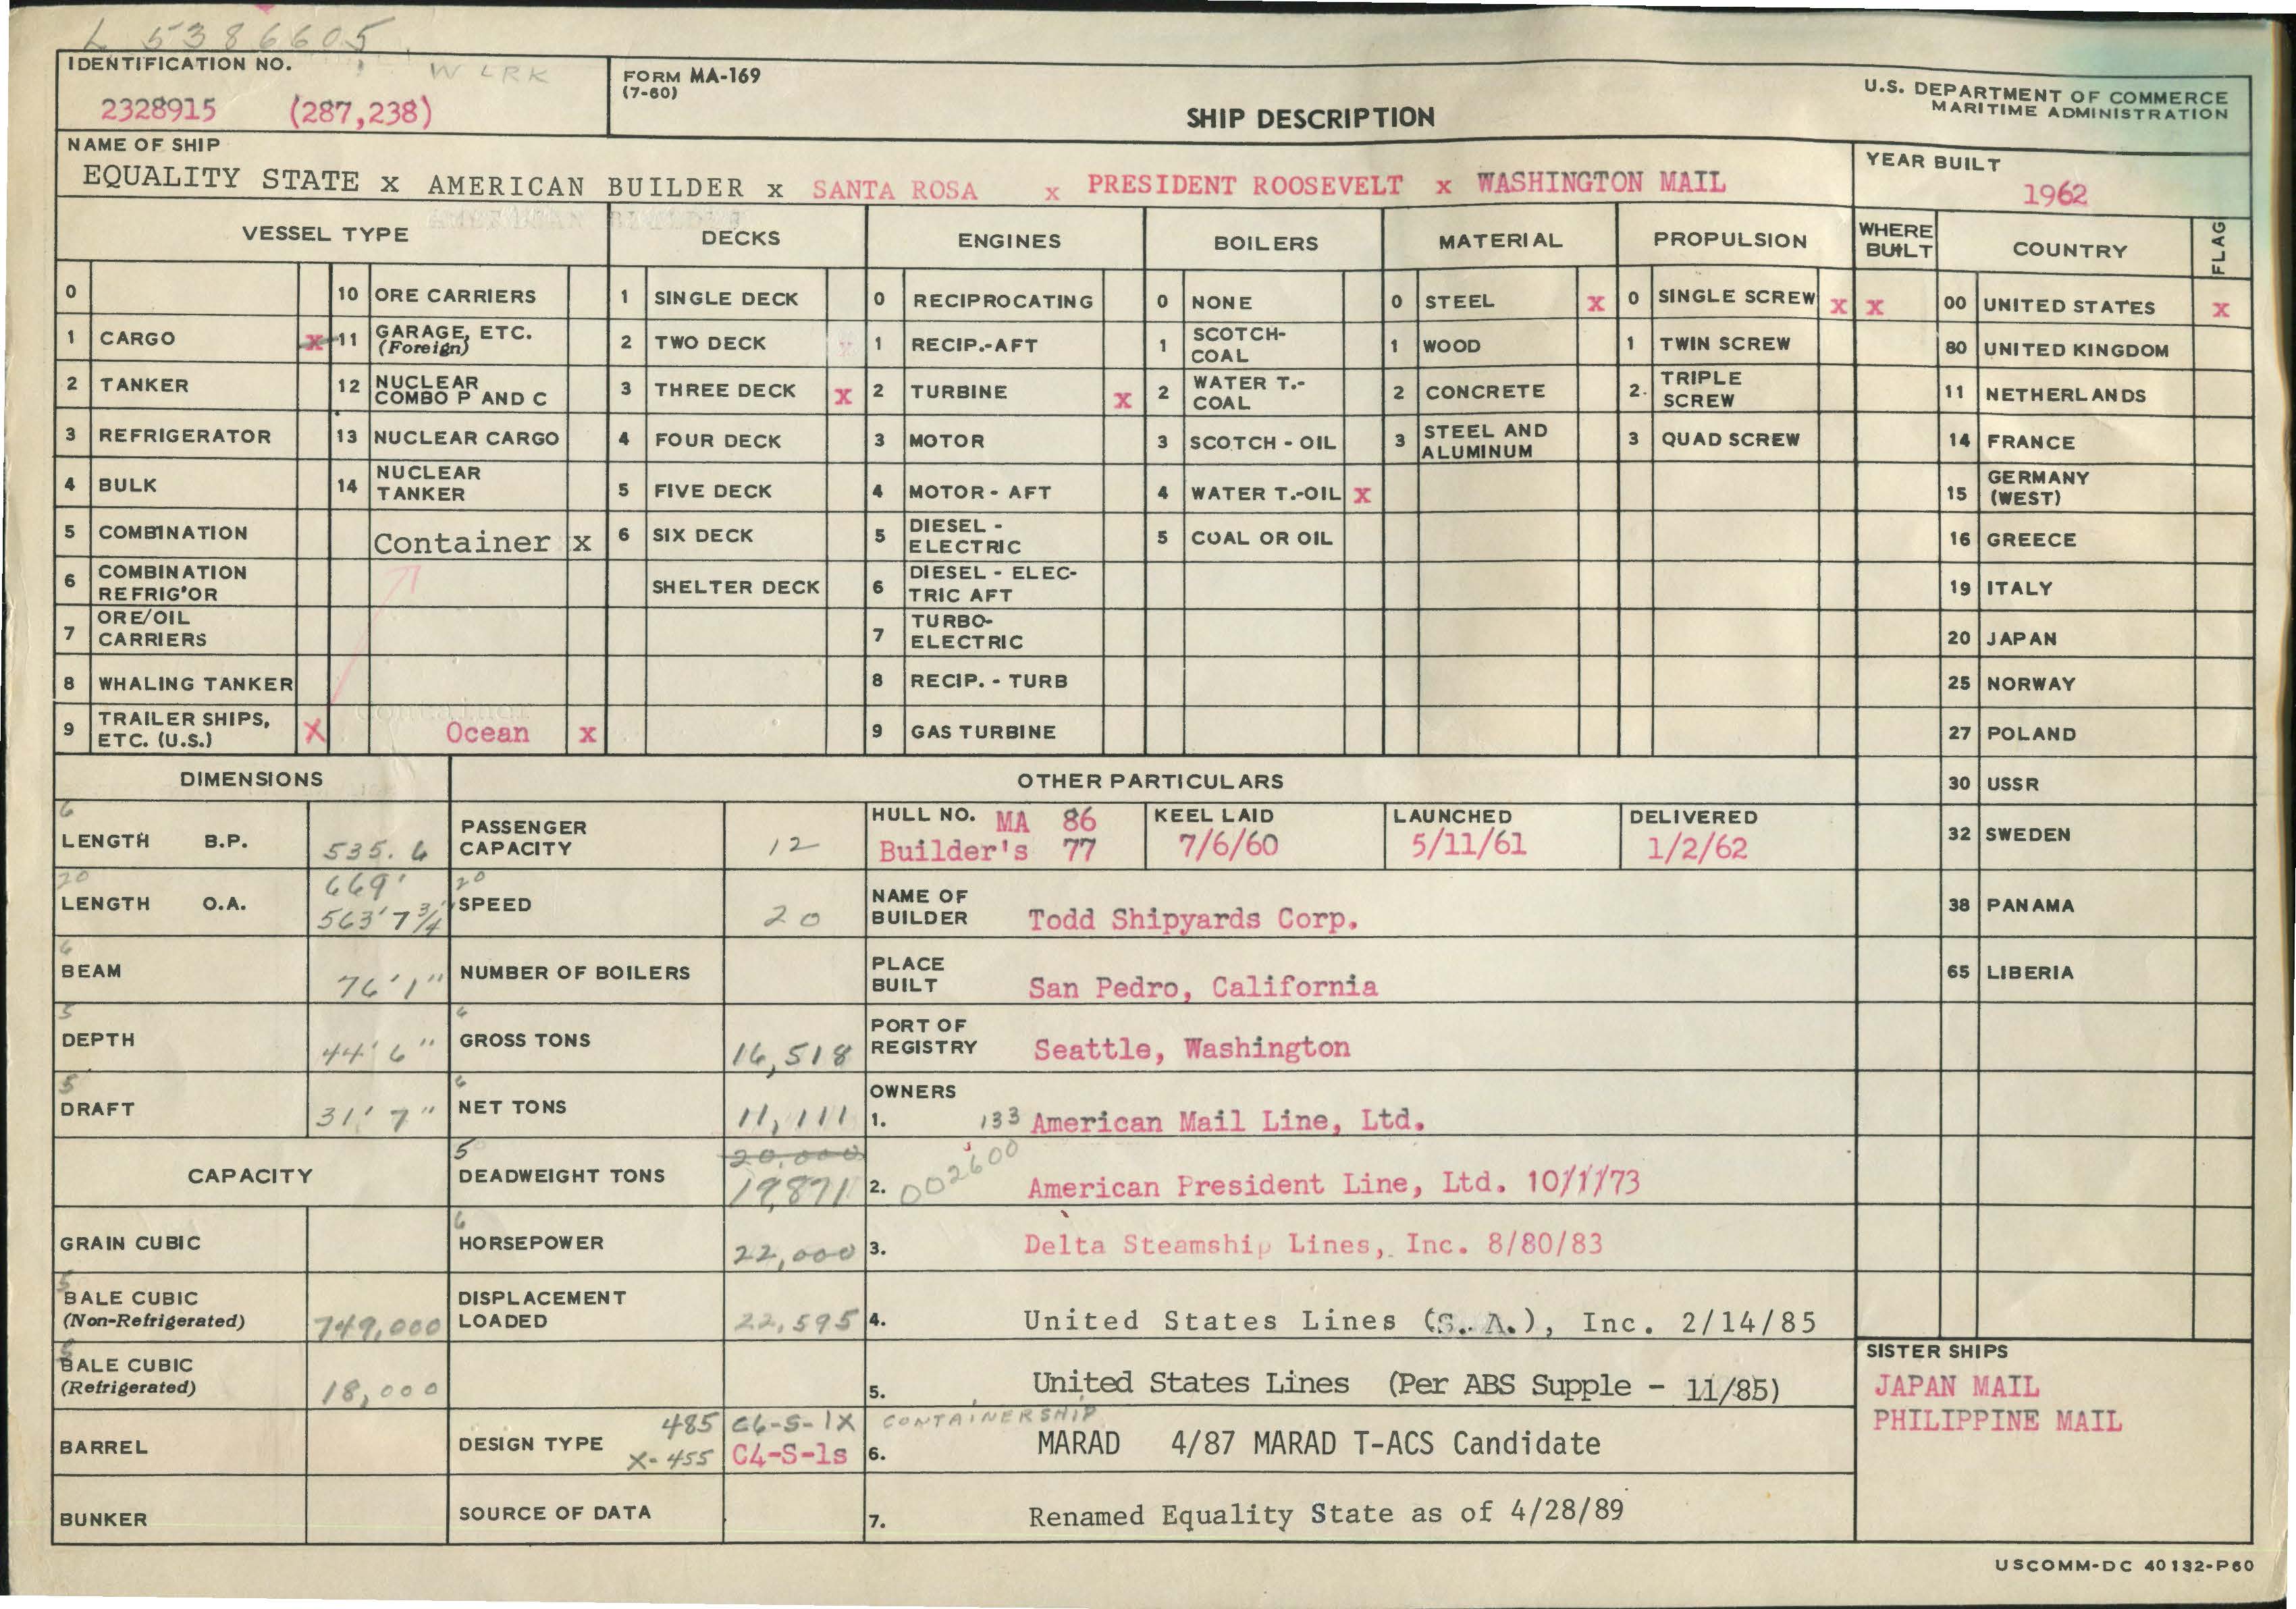 L 5386605
IDENTIFICATION NO.
W LRK
2328915 (287,238)
FORM MA-169
(7-60)
SHIP DESCRIPTION
U.S. DEPARTMENT OF COMMERCE
MARITIME ADMINISTRATION
NAME OF SHIP
EQUALITY STATE x AMERICAN BUILDER x SANTA ROSA x PRESIDENT ROOSEVELT x WASHINGTON MAIL
YEAR BUILT
1962
VESSEL TYPE DECKS ENGINES BOILERS MATERIAL PROPULSION WHERE BUILT COUNTRY FLAG
0 10 ORE CARRIERS 1 SINGLE DECK 0 RECIPROCATING 0 NONE 0 STEEL x 0 SINGLE SCREW x x 00 UNITED STATES x
1 CARGO x 11 GARAGE, ETC. (Foreign) 2 TWO DECK 1 RECIP.-AFT 1 SCOTCH-COAL 1 WOOD 1 TWIN SCREW 80 UNITED KINGDOM
2 TANKER 12 NUCLEAR COMBO P AND C 3 THREE DECK x 2 TURBINE x 2 WATER T.-COAL 2 CONCRETE 2. TRIPLE SCREW 11 NETHERLANDS
3 REFRIGERATOR 13 NUCLEAR CARGO 4 FOUR DECK 3 MOTOR 3 SCOTCH - OIL 3 STEEL AND ALUMINUM 3 QUAD SCREW 14 FRANCE
4 BULK 14 NUCLEAR TANKER 5 FIVE DECK 4 MOTOR - AFT 4 WATER T.-OIL x 15 GERMANY (WEST)
5 COMBINATION Container x 6 SIX DECK 5 DIESEL - ELECTRIC 5 COAL OR OIL 16 GREECE
6 COMBINATION REFRIG'OR SHELTER DECK 6 DIESEL - ELECTRIC AFT 19 ITALY
7 ORE/OIL CARRIERS 7 TURBO-ELECTRIC 20 JAPAN
8 WHALING TANKER 8 RECIP. - TURB 25 NORWAY
9 TRAILER SHIPS, ETC. (U.S.) X Ocean x 9 GAS TURBINE 27 POLAND
DIMENSIONS OTHER PARTICULARS 30 USSR
6
LENGTH B.P. 535.6 PASSENGER CAPACITY 12 HULL NO. MA 86 Builder's 77 KEEL LAID 7/6/60 LAUNCHED 5/11/61 DELIVERED 1/2/62 32 SWEDEN
20 669' 20
LENGTH O.A. 563'7 3/4" SPEED 20 NAME OF BUILDER Todd Shipyards Corp. 38 PANAMA
6
BEAM 76'1" NUMBER OF BOILERS PLACE BUILT San Pedro, California 65 LIBERIA
5 6
DEPTH 44'6" GROSS TONS 16,518 PORT OF REGISTRY Seattle, Washington
5 6
DRAFT 31'7" NET TONS 11,111 OWNERS 1. 133 American Mail Line, Ltd.
5 20,000
CAPACITY DEADWEIGHT TONS 19,871 2. 002600 American President Line, Ltd. 10/1/73
6
GRAIN CUBIC HORSEPOWER 22,000 3. Delta Steamship Lines, Inc. 8/80/83
5
BALE CUBIC (Non-Refrigerated) 749,000 DISPLACEMENT LOADED 22,595 4. United States Lines (S. A.), Inc. 2/14/85
SISTER SHIPS
BALE CUBIC (Refrigerated) 18,000 5. United States Lines (Per ABS Supple - 11/85) JAPAN MAIL
PHILIPPINE MAIL
485 C6-S-1X CONTAINERSHIP
BARREL DESIGN TYPE X-455 C4-S-1s 6. MARAD 4/87 MARAD T-ACS Candidate
BUNKER SOURCE OF DATA 7. Renamed Equality State as of 4/28/89
USCOMM-DC 40132-P60